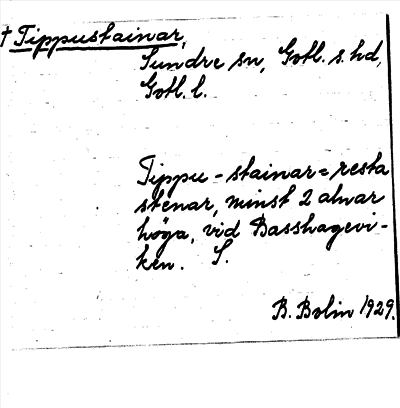 † Tippustainar,
Sundre sn, Gotl. s. hd,
Gotl. l.
Tippu-stainar = resta
stenar, minst 2 alnar
höga, vid Basshagevi-
ken. S.
B. Bolin 1929.